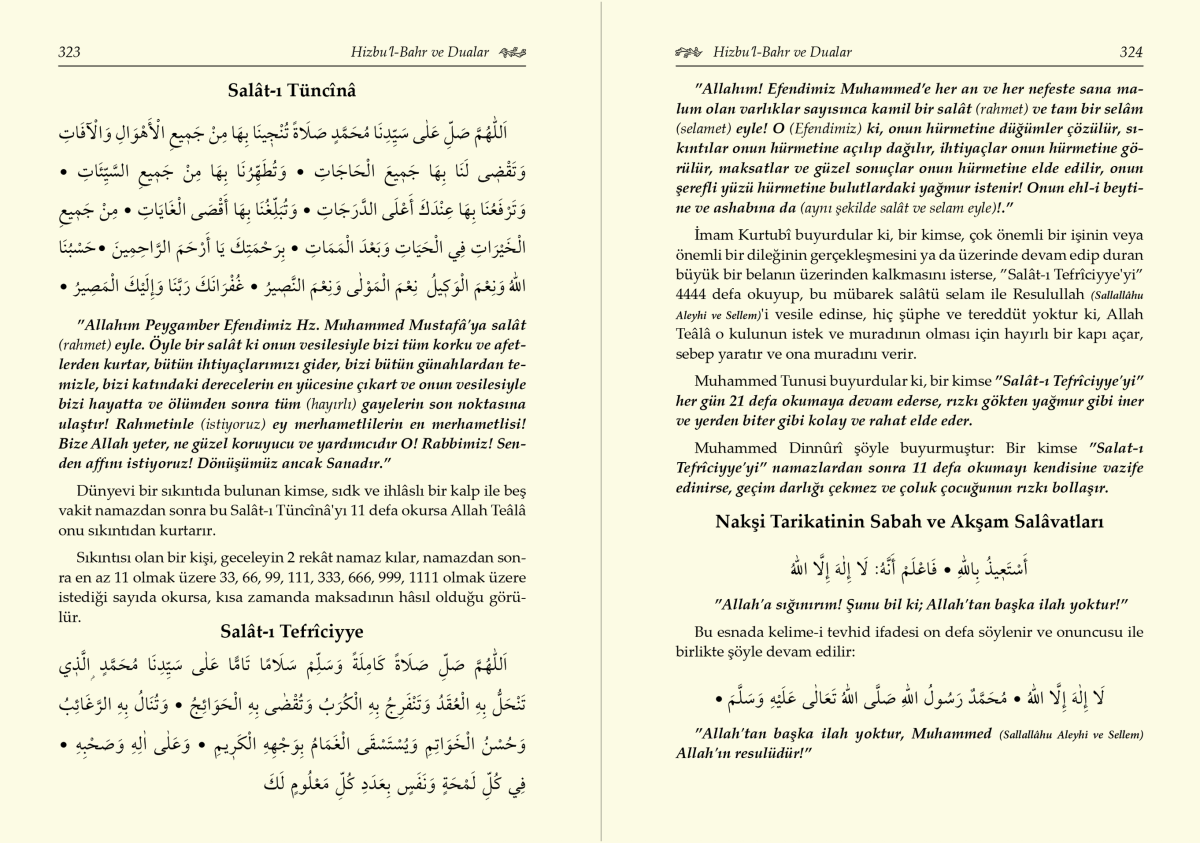 323
Hizbu'l-Bahr ve Dualar
Salât-ı Tüncînâ
اَللّٰهُمَّ صَلِّ عَلٰى سَيِّدِنَا مُحَمَّدٍ صَلَاةً تُنْجِينَا بِهَا مِنْ جَمِيعِ الْأَهْوَالِ وَالْآفَاتِ
وَتَقْضِى لَنَا بِهَا جَمِيعَ الْحَاجَاتِ • وَتُطَهِّرُنَا بِهَا مِنْ جَمِيعِ السَّيِّئَاتِ •
وَتَرْفَعُنَا بِهَا عِنْدَكَ أَعْلَى الدَّرَجَاتِ • وَتُبَلِّغُنَا بِهَا أَقْصَى الْغَايَاتِ • مِنْ جَمِيعِ
الْخَيْرَاتِ فِي الْحَيَاتِ وَبَعْدَ الْمَمَاتِ • بِرَحْمَتِكَ يَا أَرْحَمَ الرَّاحِمِينَ •حَسْبُنَا
اللهُ وَنِعْمَ الْوَكِيلُ نِعْمَ الْمَوْلٰى وَنِعْمَ النَّصِيرُ • غُفْرَانَكَ رَبَّنَا وَإِلَيْكَ الْمَصِيرُ •
"Allahım Peygamber Efendimiz Hz. Muhammed Mustafâ'ya salât
(rahmet) eyle. Öyle bir salât ki onun vesilesiyle bizi tüm korku ve afet-
lerden kurtar, bütün ihtiyaçlarımızı gider, bizi bütün günahlardan te-
mizle, bizi katındaki derecelerin en yücesine çıkart ve onun vesilesiyle
bizi hayatta ve ölümden sonra tüm (hayırlı) gayelerin son noktasına
ulaştır! Rahmetinle (istiyoruz) ey merhametlilerin en merhametlisi!
Bize Allah yeter, ne güzel koruyucu ve yardımcıdır O! Rabbimiz! Sen-
den affını istiyoruz! Dönüşümüz ancak Sanadır."
Dünyevi bir sıkıntıda bulunan kimse, sıdk ve ihlâslı bir kalp ile beş
vakit namazdan sonra bu Salât-ı Tüncînâ'yı 11 defa okursa Allah Teâlâ
onu sıkıntıdan kurtarır.
Sıkıntısı olan bir kişi, geceleyin 2 rekât namaz kılar, namazdan son-
ra en az 11 olmak üzere 33, 66, 99, 111, 333, 666, 999, 1111 olmak üzere
istediği sayıda okursa, kısa zamanda maksadının hâsıl olduğu görü-
lür.
Salât-ı Tefrîciyye
اَللّٰهُمَّ صَلِّ صَلَاةً كَامِلَةً وَسَلِّمْ سَلَامًا تَامًّا عَلٰى سَيِّدِنَا مُحَمَّدٍ ۨالَّذِي
تَنْحَلُّ بِهِ الْعُقَدُ وَتَنْفَرِجُ بِهِ الْكُرَبُ وَتُقْضٰى بِهِ الْحَوَائِجُ • وَتُنَالُ بِهِ الرَّغَائِبُ
وَحُسْنُ الْخَوَاتِمِ وَيُسْتَسْقَى الْغَمَامُ بِوَجْهِهِ الْكَرِيمِ • وَعَلٰى اٰلِهِ وَصَحْبِهِ •
فِي كُلِّ لَمْحَةٍ وَنَفَسٍ بِعَدَدِ كُلِّ مَعْلُومٍ لَكَ
Hizbu'l-Bahr ve Dualar
324
"Allahım! Efendimiz Muhammed'e her an ve her nefeste sana ma-
lum olan varlıklar sayısınca kamil bir salât (rahmet) ve tam bir selâm
(selamet) eyle! O (Efendimiz) ki, onun hürmetine düğümler çözülür, sı-
kıntılar onun hürmetine açılıp dağılır, ihtiyaçlar onun hürmetine gö-
rülür, maksatlar ve güzel sonuçlar onun hürmetine elde edilir, onun
şerefli yüzü hürmetine bulutlardaki yağmur istenir! Onun ehl-i beyti-
ne ve ashabına da (aynı şekilde salât ve selam eyle)!."
İmam Kurtubî buyurdular ki, bir kimse, çok önemli bir işinin veya
önemli bir dileğinin gerçekleşmesini ya da üzerinde devam edip duran
büyük bir belanın üzerinden kalkmasını isterse, "Salât-ı Tefrîciyye'yi"
4444 defa okuyup, bu mübarek salâtü selam ile Resulullah (Sallallâhu
Aleyhi ve Sellem)'i vesile edinse, hiç şüphe ve tereddüt yoktur ki, Allah
Teâlâ o kulunun istek ve muradının olması için hayırlı bir kapı açar,
sebep yaratır ve ona muradını verir.
Muhammed Tunusi buyurdular ki, bir kimse "Salât-ı Tefrîciyye'yi"
her gün 21 defa okumaya devam ederse, rızkı gökten yağmur gibi iner
ve yerden biter gibi kolay ve rahat elde eder.
Muhammed Dinnûrî şöyle buyurmuştur: Bir kimse "Salat-ı
Tefrîciyye'yi" namazlardan sonra 11 defa okumayı kendisine vazife
edinirse, geçim darlığı çekmez ve çoluk çocuğunun rızkı bollaşır.
Nakşi Tarikatinin Sabah ve Akşam Salâvatları
أَسْتَعِيذُ بِاللهِ • فَاعْلَمْ أَنَّهُ: لَا إِلٰهَ إِلَّا اللهُ
"Allah'a sığınırım! Şunu bil ki; Allah'tan başka ilah yoktur!"
Bu esnada kelime-i tevhid ifadesi on defa söylenir ve onuncusu ile
birlikte şöyle devam edilir:
لَا إِلٰهَ إِلَّا اللهُ • مُحَمَّدٌ رَسُولُ اللهِ صَلَّى اللهُ تَعَالٰى عَلَيْهِ وَسَلَّمَ •
"Allah'tan başka ilah yoktur, Muhammed (Sallallâhu Aleyhi ve Sellem)
Allah'ın resulüdür!"